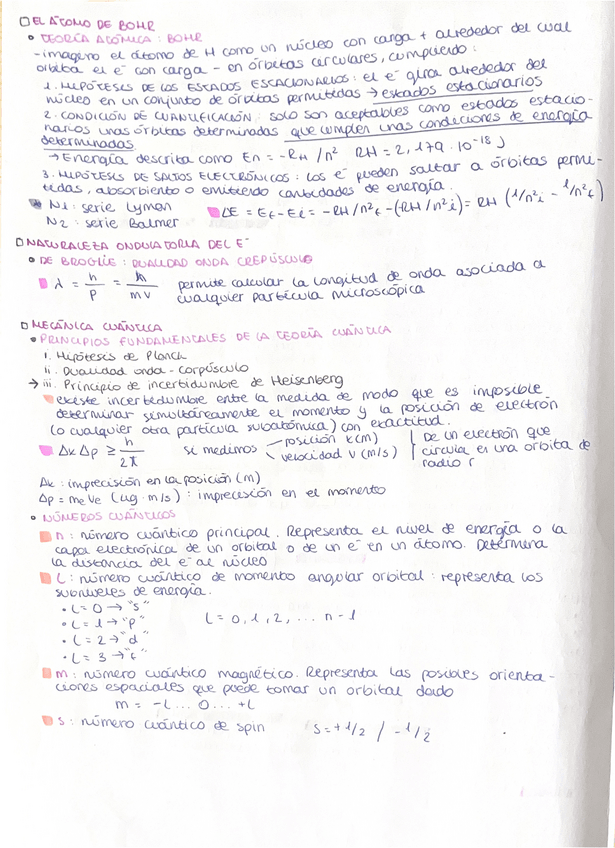 EL ÁTOMO DE BOHR
• TEORÍA ATÓMICA: BOHR
- imagino el átomo de H como un núcleo con carga + alrededor del cual
orbita el e⁻ con carga - en órbitas circulares, cumpliendo:
1. HIPÓTESIS DE LOS ESTADOS ESTACIONARIOS: el e⁻ gira alrededor del
núcleo en un conjunto de órbitas permitidas → estados estacionarios
2. CONDICIÓN DE CUANTIFICACIÓN: solo son aceptables como estados estacio-
narios unas órbitas determinadas que cumplen unas condiciones de energía
determinadas.
→ Energía descrita como En = -RH /n² RH = 2,179 · 10⁻¹⁸ J
3. HIPÓTESIS DE SALTOS ELECTRÓNICOS: los e⁻ pueden saltar a órbitas permi-
tidas, absorbiento o emitiendo cantidades de energía.
* N1: serie Lyman ΔE = Ef - Ei = -RH/n²f - (RH/n²i) = RH (1/n²i - 1/n²f)
N2: serie Balmer
NATURALEZA ONDULATORIA DEL E⁻
• DE BROGLIE: DUALIDAD ONDA CREPÚSCULO
λ = h/p = h/mv permite calcular la longitud de onda asociada a
cualquier partícula microscópica
MECÁNICA CUÁNTICA
• PRINCIPIOS FUNDAMENTALES DE LA TEORÍA CUÁNTICA
i. Hipótesis de Planck
ii. Dualidad onda-corpúsculo
→ iii. Principio de incertidumbre de Heisenberg
existe incertidumbre entre la medida de modo que es imposible
determinar simultáreamente el momento y la posición de electrón
(o cualquier otra partícula subatómica) con exactitud.
Δx Δp ≥ h/2π si medimos posición x(m) velocidad v(m/s) De un electrón que
circula es una orbita de
radio r
Δx: imprecisión en la posición (m)
Δp = me ve (kg·m/s): imprecisión en el momento
• NÚMEROS CUÁNTICOS
n: número cuántico principal. Representa el nivel de energía o la
capa electrónica de un orbital o de un e⁻ en un átomo. Determina
la distancia del e⁻ al núcleo
L: número cuántico de momento angular orbital: representa los
subniveles de energía.
• L=0 → "s"
• L=1 → "p" L = 0, 1, 2, ... n-1
• L=2 → "d"
• L=3 → "f"
m: número cuántico magnético. Representa las posibles orienta-
ciones espaciales que puede tomar un orbital dado
m = -L ... 0 ... +L
s: número cuántico de spin s = +1/2 / -1/2